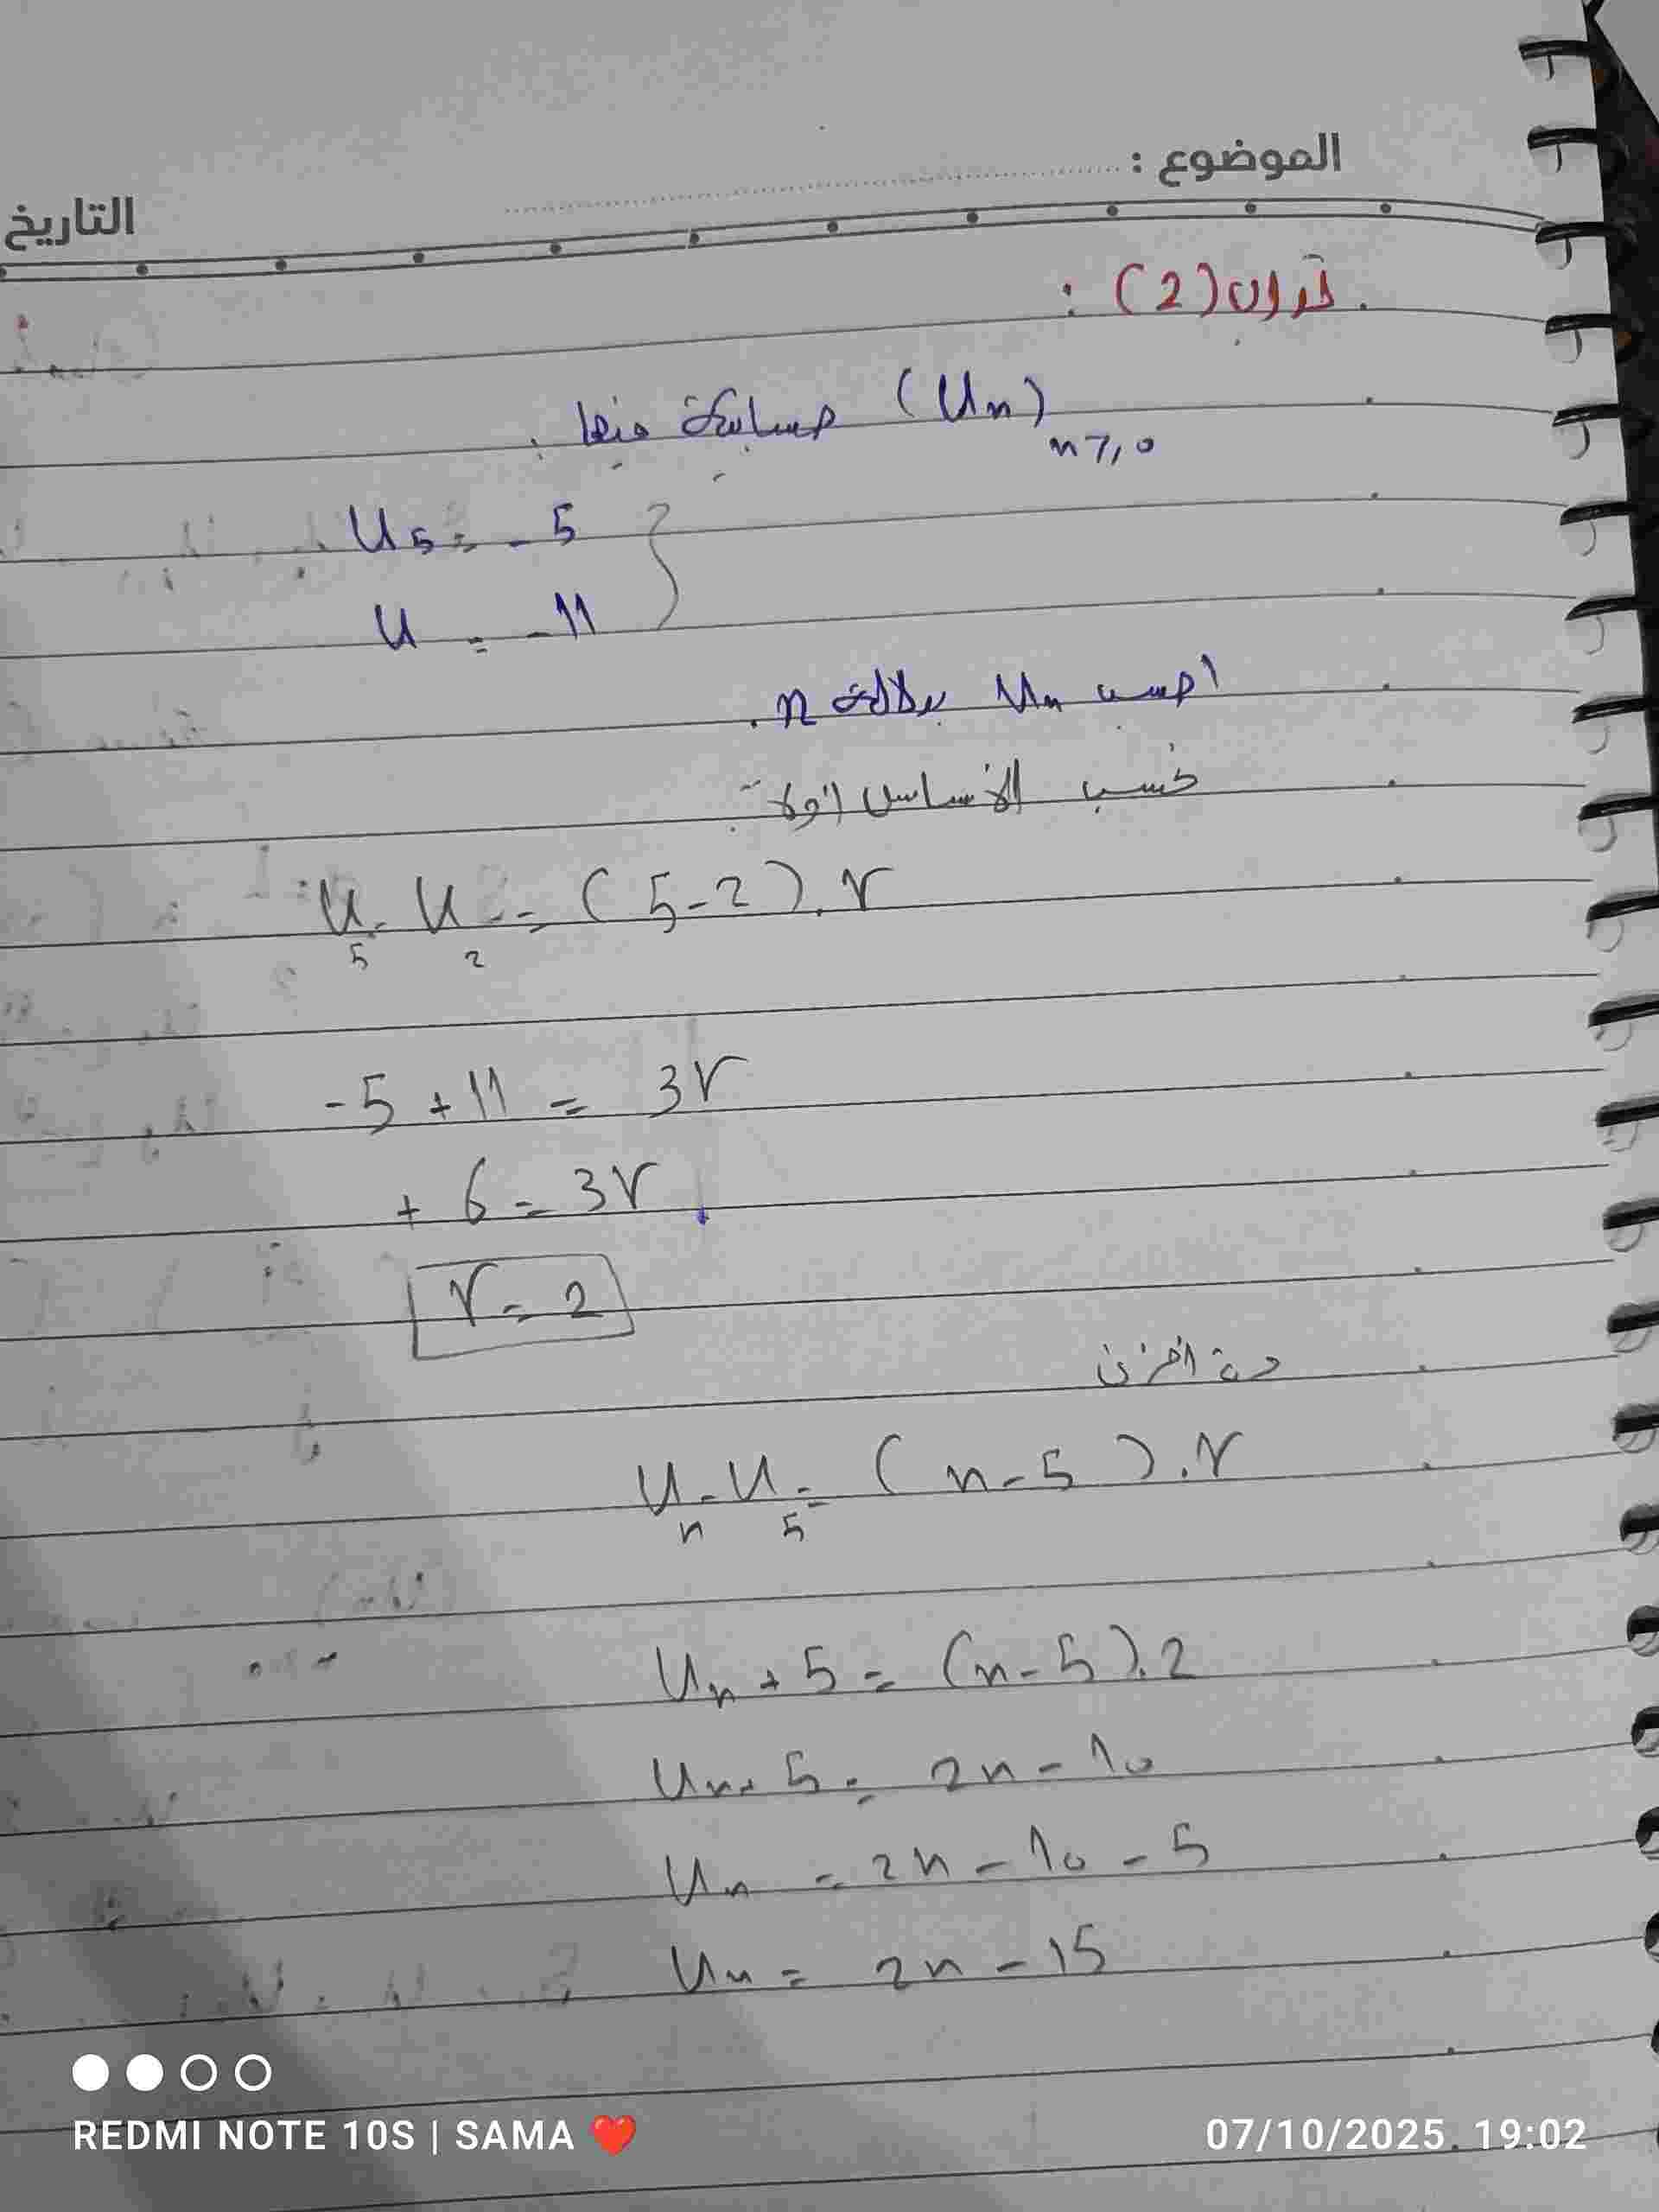 الموضوع :
التاريخ
تمرين (2) :
(Un) n≥0 حسابية فيها :
U5 = -5
U = -11
احسب Un بدلالة n.
نحسب الأساس أولاً :
U5 - U2 = (5-2).r
-5 + 11 = 3r
+ 6 = 3r
r = 2
Un - U5 = (n-5).r
Un + 5 = (n-5).2
Un + 5 = 2n - 10
Un = 2n - 10 - 5
Un = 2n - 15
REDMI NOTE 10S | SAMA ❤️
07/10/2025 19:02